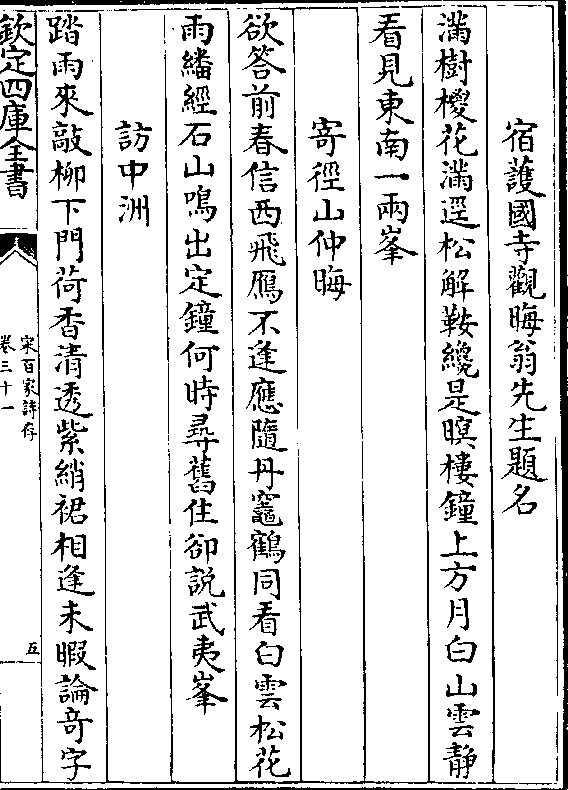 宿䕶國寺觀晦翁先生題名
滿樹櫻花滿逕松解鞍纔是暝樓鐘上方月白山雲靜
看見東南一兩峯
寄徑山仲晦
欲答前春信西飛鴈不逢應隨丹竈鶴同看白雲松花
雨繙經石山鳴出定鐘何時尋舊住卻説武夷峯
訪中洲
踏雨來敲柳下門荷香清透紫綃裙相逢未暇論竒字
欽定四庫全書
宋百家詩存
卷三十一
五